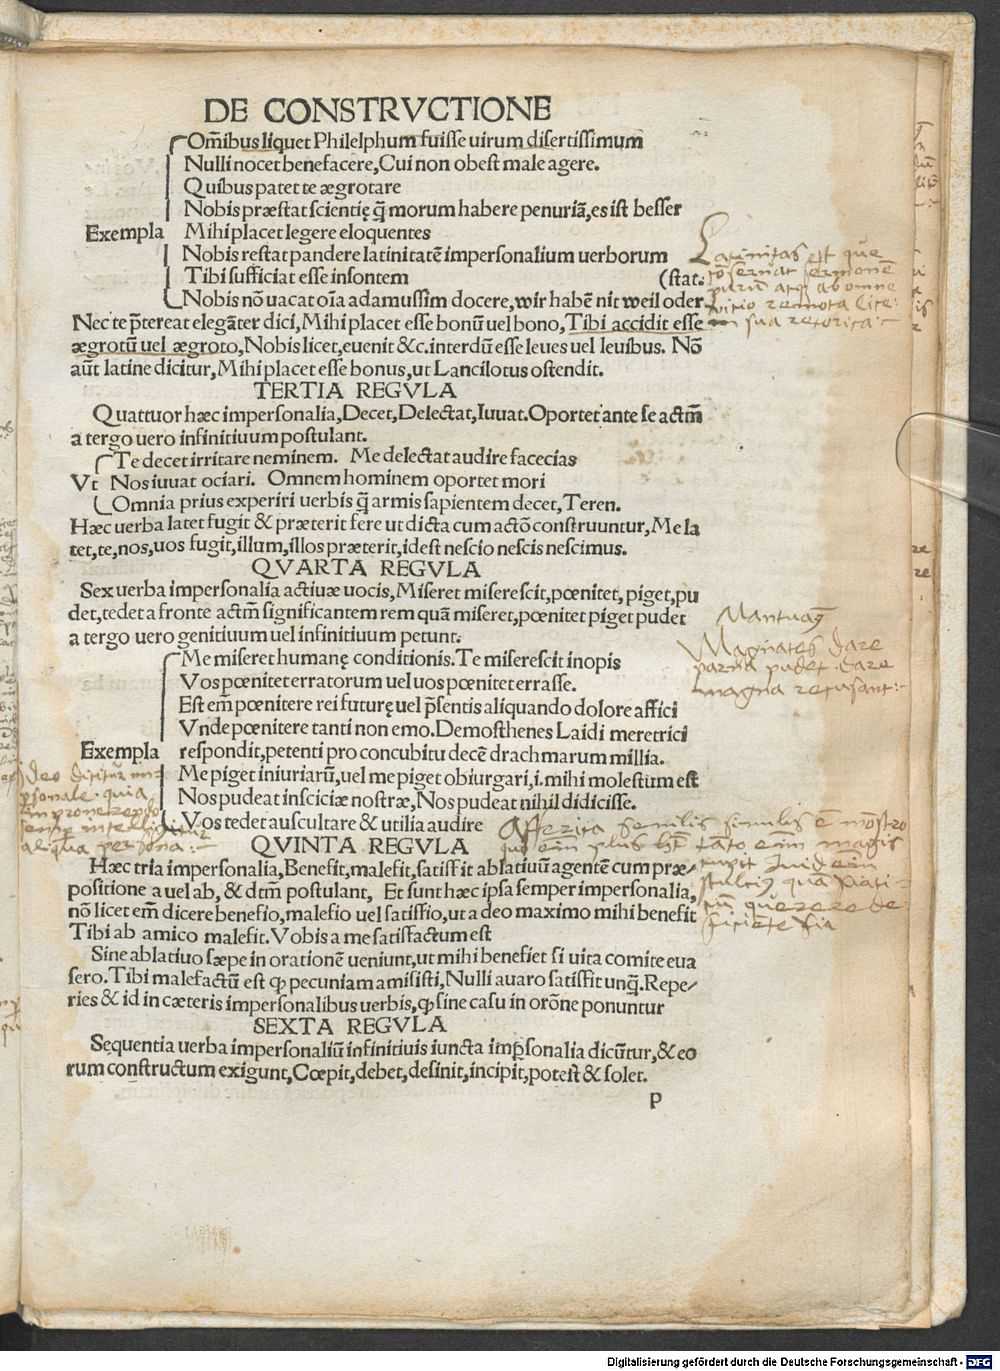 DE CONSTRVCTIONE
Om̃ibus liquet Philelphum fuisse uirum disertissimum
Nulli nocet benefacere, Cui non obest male agere.
Quibus patet te ægrotare
Nobis præstat scientię q̃ morum habere penuriã, es ist besser
Exempla Mihi placet legere eloquentes
Nobis restat pandere latinitatẽ impersonalium uerborum
Tibi sufficiat esse insontem (stat.
Nobis nõ uacat oĩa adamussim docere, wir habẽ nit weil oder
Nec te p̃tereat elegãter dici, Mihi placet esse bonũ uel bono, Tibi accidit esse
ægrotũ uel ægroto, Nobis licet, euenit &c. interdũ esse leues uel leuibus. Nõ
aũt latine dicitur, Mihi placet esse bonus, ut Lancilotus ostendit.
TERTIA REGVLA
Quattuor hæc impersonalia, Decet, Delectat, Iuuat. Oportet ante se actm̃
a tergo uero infinitiuum postulant.
Te decet irritare neminem. Me delectat audire facecias
Vt Nos iuuat ociari. Omnem hominem oportet mori
Omnia prius experiri uerbis q̃ armis sapientem decet, Teren.
Hæc uerba latet fugit & præterit fere ut dicta cum actõ construuntur, Me la
tet, te, nos, uos fugit, illum, illos præterit, idest nescio nescis nescimus.
QVARTA REGVLA
Sex uerba impersonalia actiuæ uocis, Miseret miserescit, pœnitet, piget, pu
det, tedet a fronte actm̃ significantem rem quã miseret, pœnitet piget pudet
a tergo uero genitiuum uel infinitiuum petunt.
Me miseret humanę conditionis. Te miserescit inopis
Vos pœnitet erratorum uel uos pœnitet errasse.
Est em̃ pœnitere rei futurę uel p̃sentis aliquando dolore affici
Vnde pœnitere tanti non emo. Demosthenes Laidi meretrici
Exempla respondit, petenti pro concubitu decẽ drachmarum millia.
Me piget iniuriarũ, uel me piget obiurgari, i. mihi molestum est
Nos pudeat insciciæ nostræ, Nos pudeat nihil didicisse.
Vos tedet auscultare & utilia audire
QVINTA REGVLA
Hæc tria impersonalia, Benefit, malefit, satisfit ablatiuũ agentẽ cum præ/
positione a uel ab, & dtm̃ postulant, Et sunt hæc ipsa semper impersonalia,
nõ licet em̃ dicere benefio, malefio uel satisfio, ut a deo maximo mihi benefit
Tibi ab amico malefit. Vobis a me satisfactum est
Sine ablatiuo sæpe in orationẽ ueniunt, ut mihi benefiet si uita comite eua
sero. Tibi malefactũ est ꝙ pecuniam amisisti, Nulli auaro satisfit unq̃. Repe/
ries & id in cæteris impersonalibus uerbis, ꝙ sine casu in orõne ponuntur
SEXTA REGVLA
Sequentia uerba impersonaliũ infinitiuis iuncta imp̃sonalia dicũtur, & eo
rum constructum exigunt, Cœpit, debet, desinit, incipit, potest & solet.
p
Latinitas est que
sermonẽ
purũ atq̃ ab omne
uitio remota
Magnates dare
parua pudet dare
magna recusant:
quia
aliqua persona
Digitalisierung gefördert durch die Deutsche Forschungsgemeinschaft - DFG